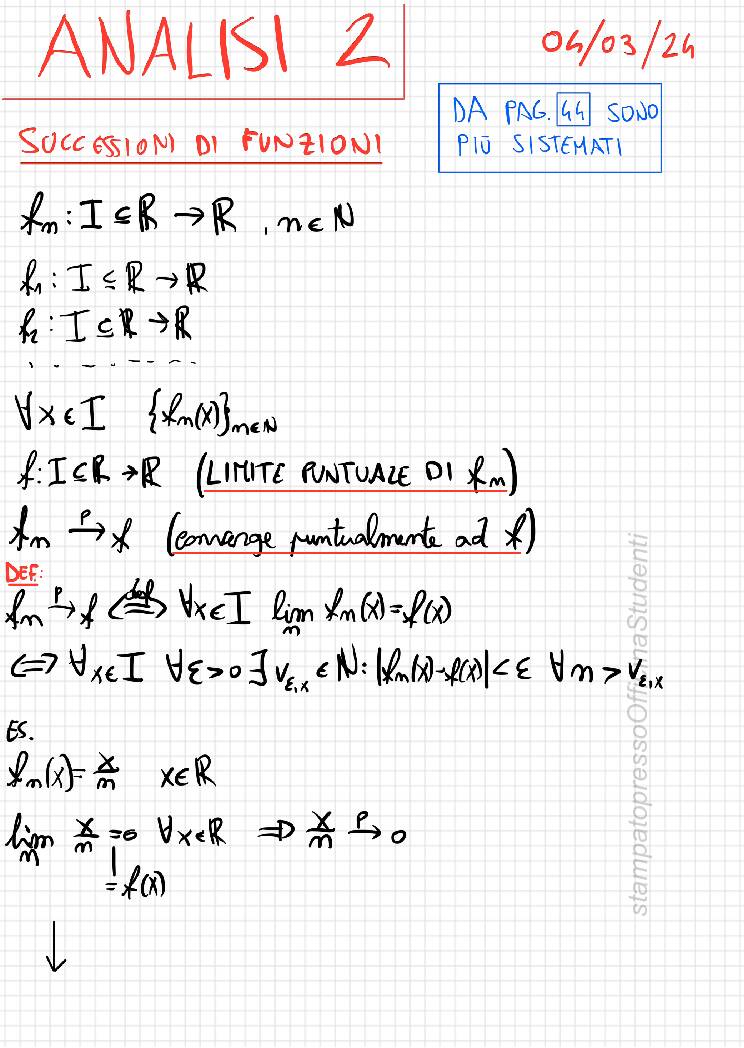 ANALISI 2
04/03/24
DA PAG. 44 SONO
PIÙ SISTEMATI
SUCCESSIONI DI FUNZIONI
fn : I ⊆ ℝ → ℝ , n ∈ ℕ
f1 : I ⊆ ℝ → ℝ
f2 : I ⊆ ℝ → ℝ
. . - - - - -
∀x ∈ I {fn(x)}n∈ℕ
f: I ⊆ ℝ → ℝ (LIMITE PUNTUALE DI fn)
fn →ᴾ f (converge puntualmente ad f)
DEF:
fn →ᴾ f ⇔(def) ∀x ∈ I lim n fn(x) = f(x)
⇔ ∀x∈I ∀ε>0 ∃ νε,x ∈ ℕ: |fn(x)-f(x)| < ε ∀n > νε,x
ES.
fn(x) = x/n x ∈ ℝ
lim n x/n = 0 ∀x∈ℝ ⇒ x/n →ᴾ 0
= f(x)
↓
stampatopressoOfficinaStudenti